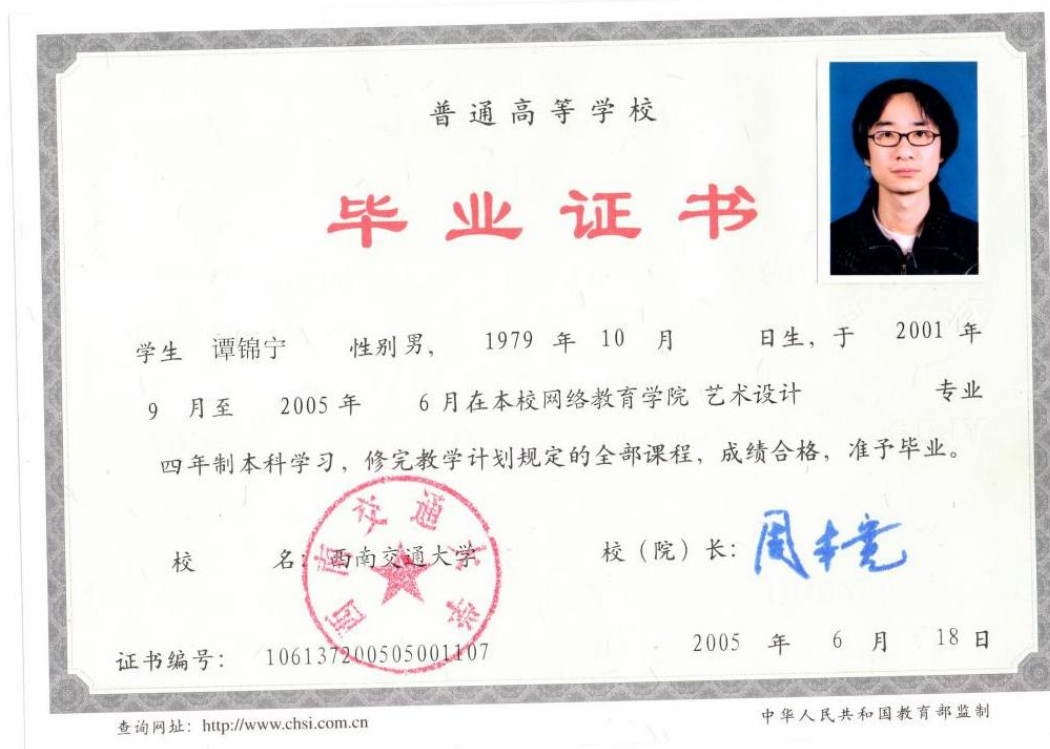 普通高等学校
毕业证书
学生 谭锦宁 性别 男， 1979 年 10 月 日生，于 2001 年
9 月至 2005 年 6 月在本校网络教育学院 艺术设计 专业
四年制本科学习，修完教学计划规定的全部课程，成绩合格，准予毕业。
校 名：西南交通大学 校（院）长：周本宽
西南交通大学
证书编号： 106137200505001107 2005 年 6 月 18 日
查询网址：http://www.chsi.com.cn 中华人民共和国教育部监制